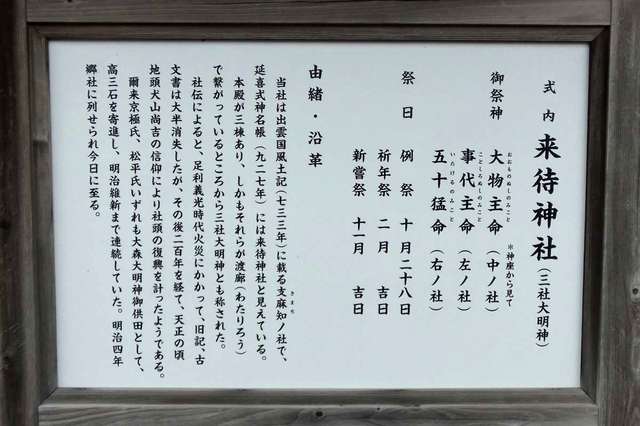 式内 来待神社（三社大明神）
※神座から見て
御祭神 大物主命（中ノ社）
おおものぬしのみこと
事代主命（左ノ社）
ことしろぬしのみこと
五十猛命（右ノ社）
いたけるのみこと
祭日 例祭 十月二十八日
祈年祭 二月 吉日
新嘗祭 十一月 吉日
由緒・沿革
当社は出雲国風土記（七三三年）に載る支麻知ノ社で、
きまち
延喜式神名帳（九二七年）には来待神社と見えている。
本殿が三棟あり、しかもそれらが渡廊（わたりろう）
で繋がっているところから三社大明神とも称された。
社伝によると、足利義光時代火災にかかって、旧記、古
文書は大半消失したが、その後二百年を経て、天正の頃
地頭犬山尚吉の信仰により社頭の復興を計ったようである。
爾来京極氏、松平氏いずれも大森大明神御供田として、
高三石を寄進し、明治維新まで連続していた。明治四年
郷社に列せられ今日に至る。